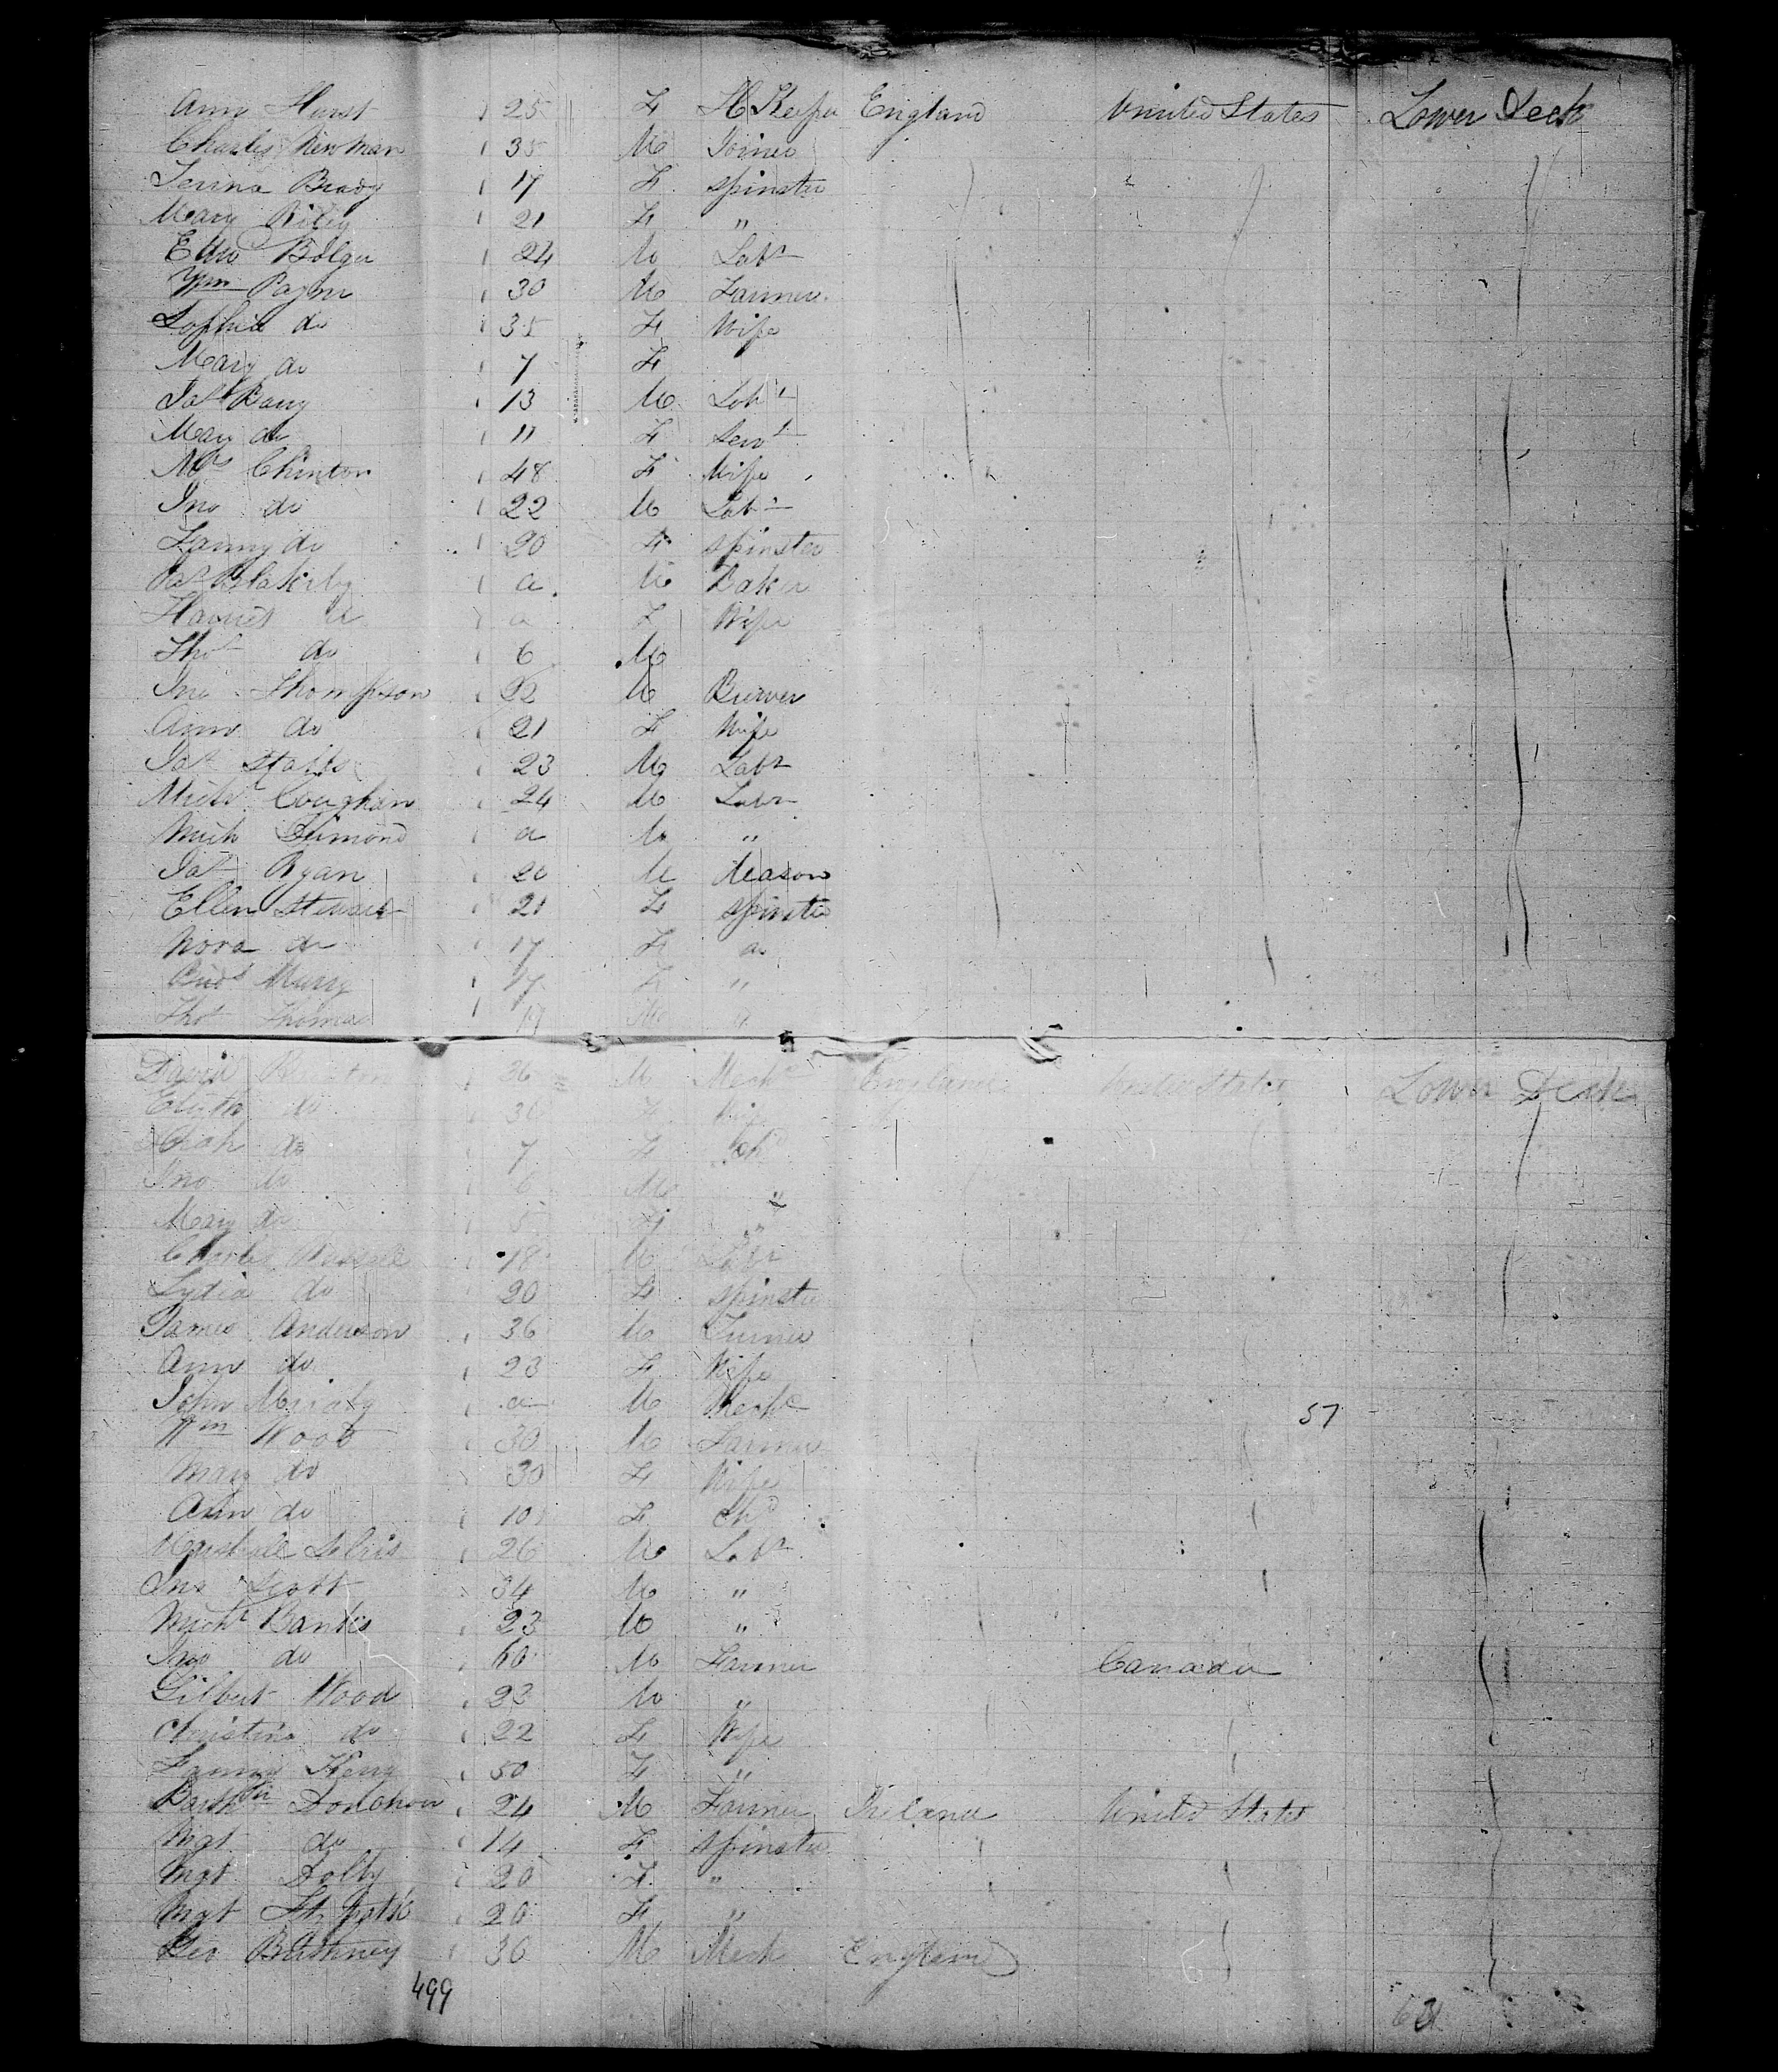 Ann Hurst 25 F H Keeper England United States Lower Deck
Charles Newman 35 M Joiner
Brady 17 F spinster
Mary Riley 21 F "
Edwd Bolger 24 M Labr
Wm Payne 30 M Farmer
Sophia do 35 F Wife
Mary do 7 F
Jas Barry 13 M Labr
Mary do 11 F Servt
Mrs Chinton 48 F Wife
Jno do 22 M Labr
Fanny do 20 F spinster
Jas Blakeby a M Baker
Harriet do a F Wife
Thos do 6 M
Jno Thompson 22 M Brewer
Ann do 21 F Wife
Jas 23 M Labr
Michl Coughan 24 M Labr
Mich a M "
Jas Ryan 20 M Mason
Ellen Stewart 21 F spinster
Nora do 17 F do
Murry 17 F "
Thos Thomas 19 M "
David 36 M Mechc England United States Lower Deck
Elizth do 30 F Wife
do 7 F Chd
Jno do 6 M "
Mary do 5 F "
Charles Russell 18 M Labr
Lydia do 20 F spinster
James Anderson 36 M Turner
Ann do 23 F Wife
John a M Mechc
57
Wm Wood 30 M Farmer
Mary do 30 F Wife
Ann do 10 F Chd
26 M Labr
Jno Scott 34 M "
Michl Banks 23 M "
Jno do 60 M Farmer Canada
Gilbert Wood 23 M "
Christina do 22 F Wife
Fanny 50 F "
Donohou 24 M Farmer Ireland United States
Mgt do 14 F spinster
Mgt Dolby 20 F "
Mgt 20 F "
Geo 36 M Mech England
499